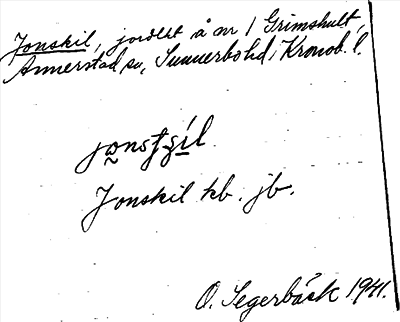 Jonskil, jordlht å nr 1 Grimshult,
Annerstad sn, Sunnerbo hd, Kronob. l.
Jonskil kb. jb.
O. Segerbäck 1941.